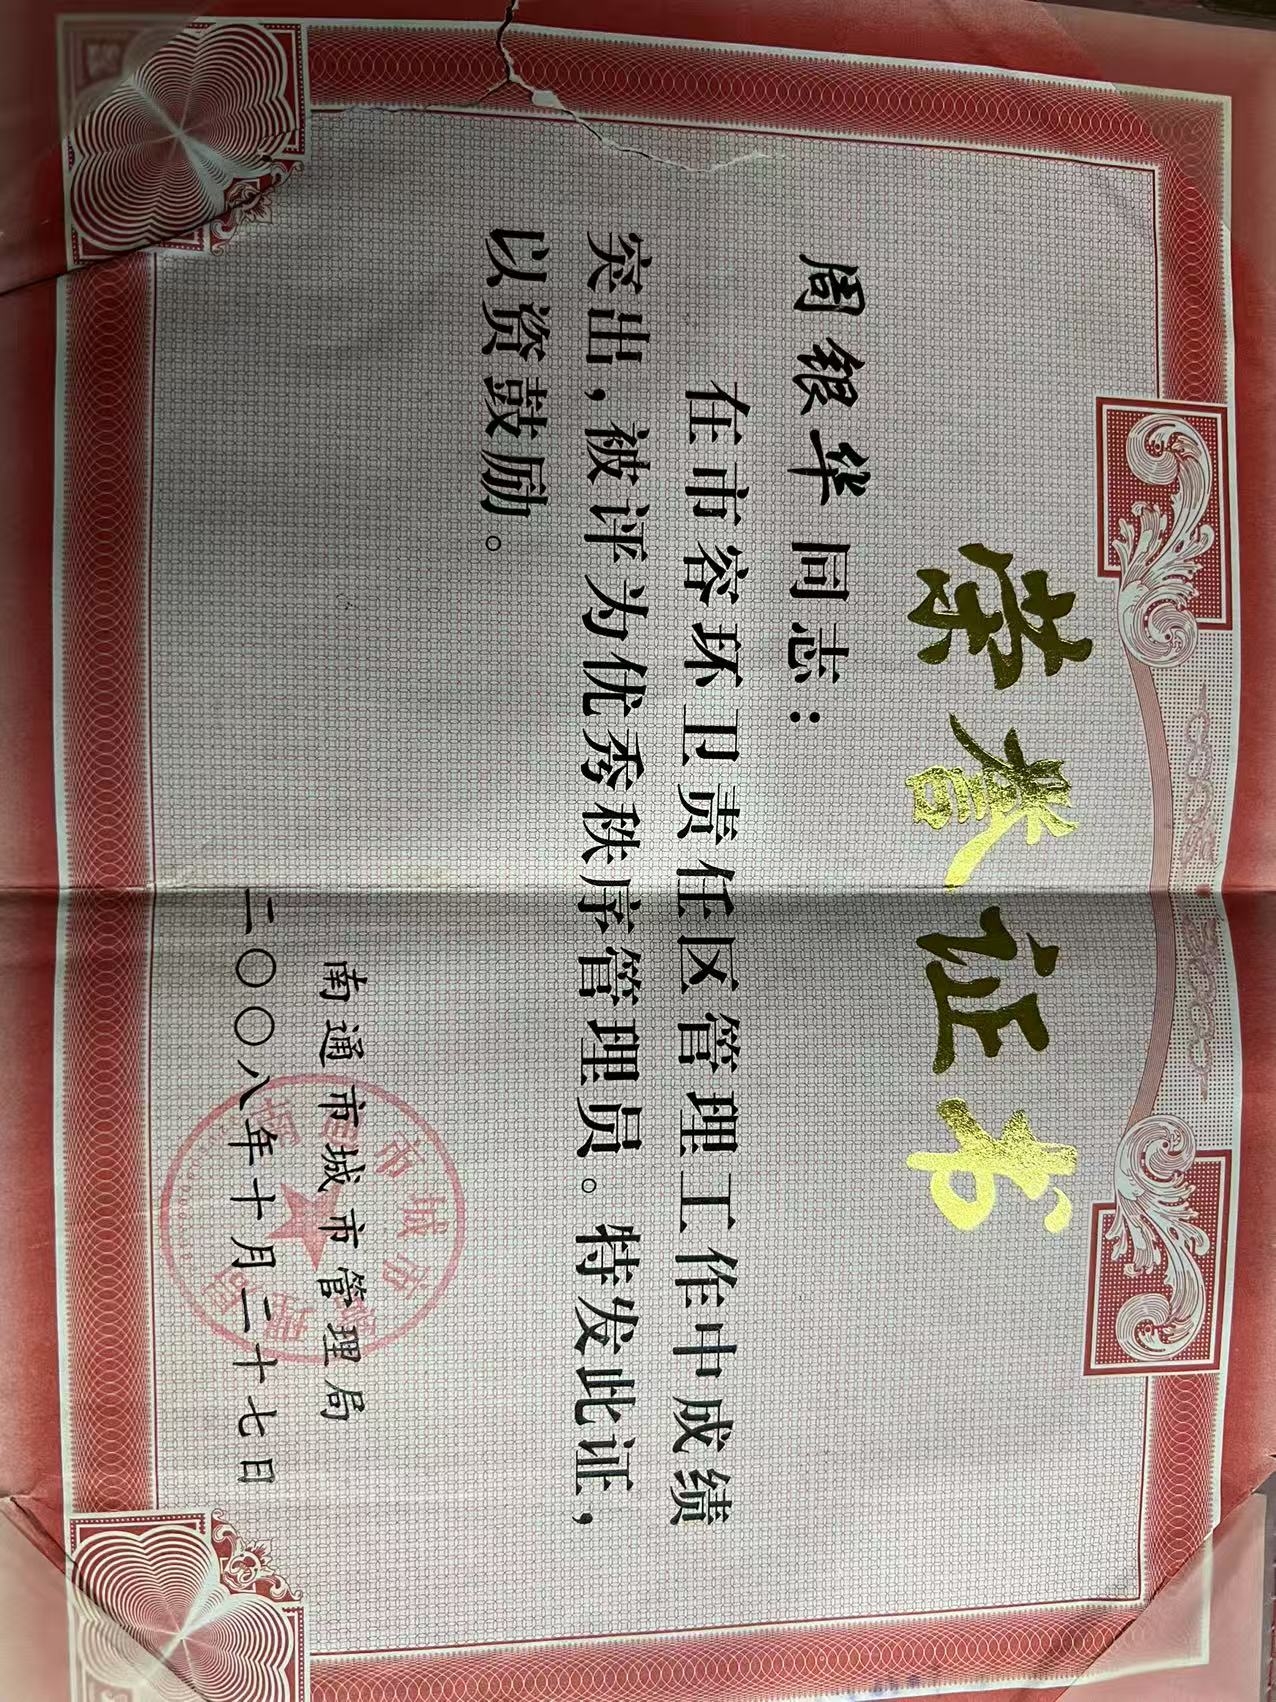 荣誉证书
周银华同志：
在市容环卫责任区管理工作中成绩
突出，被评为优秀秩序管理员。特发此证，
以资鼓励。
南通市城市管理局
二〇〇八年十月二十七日